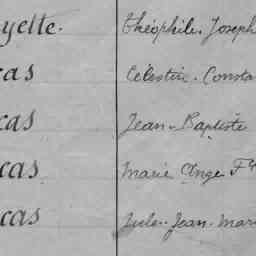 yelle. Théophile. Joseph
cas Célestin. Consta
cas Jean-Baptiste
cas Marie Ange Fs
cas Jule. Jean. Mari